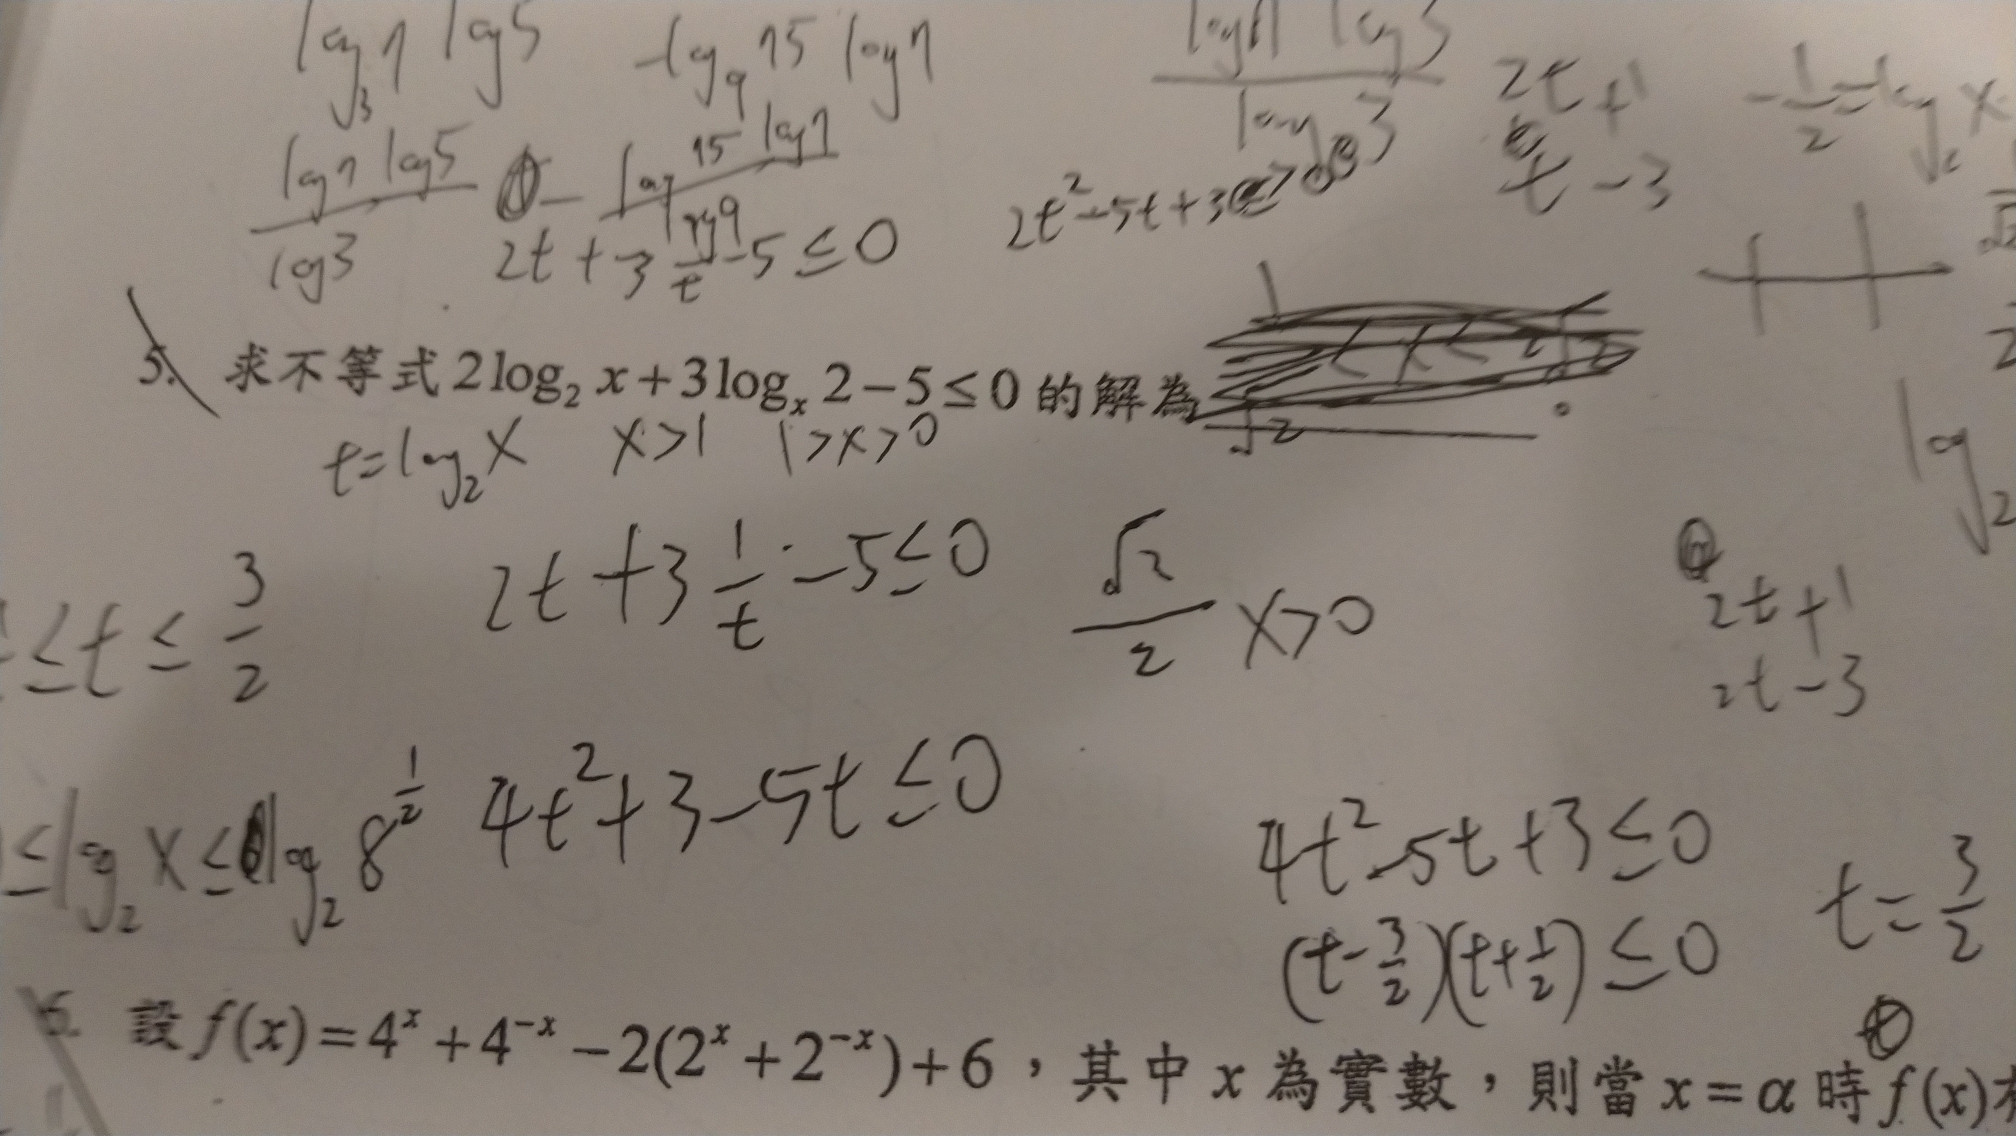 log₃7 log5 -log₉75 log7
log7 log5
log3
log 75 log7
log9
log 3
2t+3 1/t -5≤0
2t²-5t+3
2t +1
t -3
-1/2=log₂x
5. 求不等式 2log₂ x+3logₓ 2-5≤0 的解為 。
t=log₂x x>1 1>x>0
≤t≤ 3/2
2t+3 1/t -5≤0
√2/2 x>0
log₂
2t+1
2t-3
≤log₂x≤log₂8^(1/2)
4t²+3-5t≤0
4t²-5t+3≤0
(t-3/2)(t+1/2)≤0
t=3/2
6. 設 f(x)=4ˣ+4⁻ˣ-2(2ˣ+2⁻ˣ)+6，其中 x 為實數，則當 x=α 時 f(x)